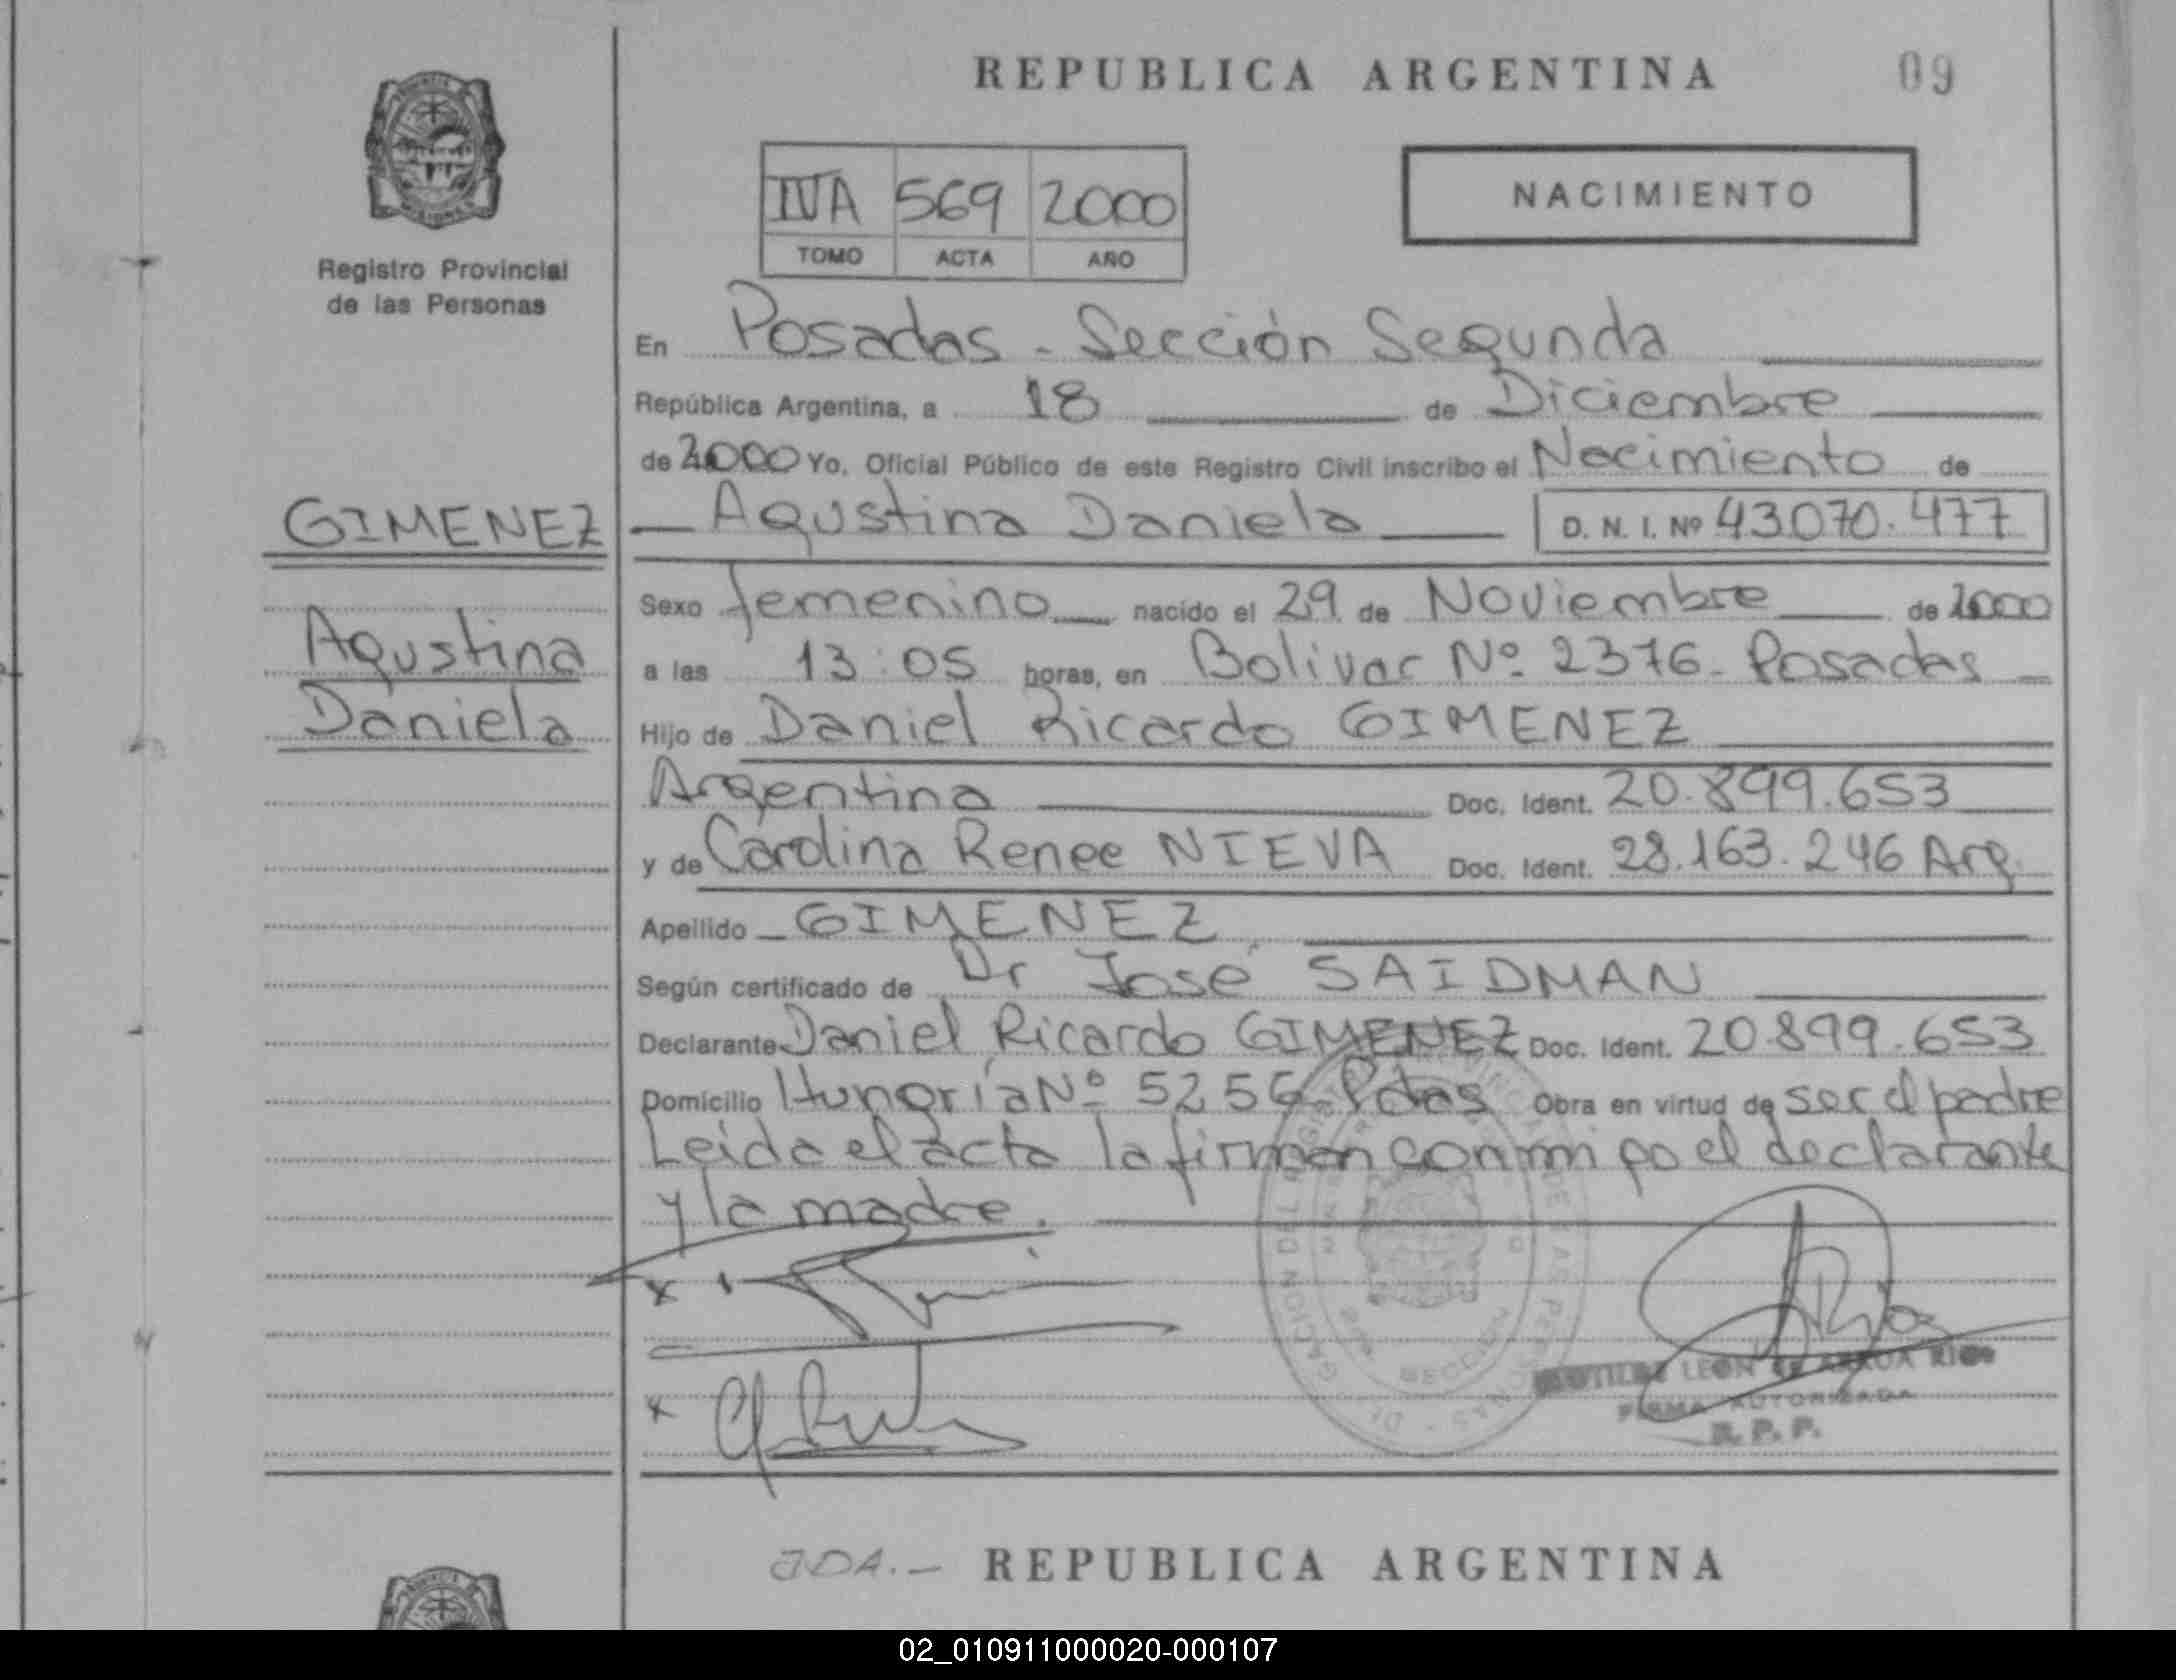 REPUBLICA ARGENTINA
09
PROVINCIA
MISIONES
Registro Provincial
de las Personas
IVA 569 2000
TOMO ACTA AÑO
NACIMIENTO
En Posadas - Sección Segunda
República Argentina, a 18 de Diciembre
de 2000 Yo, Oficial Público de este Registro Civil inscribo el Nacimiento de
GIMENEZ
Agustina Daniela D. N. I. Nº 43.070.477
Agustina
Daniela
Sexo femenino nacido el 29 de Noviembre de 2000
a las 13:05 horas, en Bolivar Nº 2376 - Posadas
Hijo de Daniel Ricardo GIMENEZ
Argentina Doc. Ident. 20.899.653
y de Carolina Renee NIEVA Doc. Ident. 28.163.246 Arg.
Apellido GIMENEZ
Según certificado de Dr José SAIDMAN
Declarante Daniel Ricardo GIMENEZ Doc. Ident. 20.899.653
Domicilio Hungría Nº 5256 - Pdas Obra en virtud de ser el padre
Leida el acta la firman conmigo el declarante
y la madre.
LEON DE ARAUX RIOS
FIRMA AUTORIZADA
R. P. P.
JDA.- REPUBLICA ARGENTINA
02_010911000020-000107